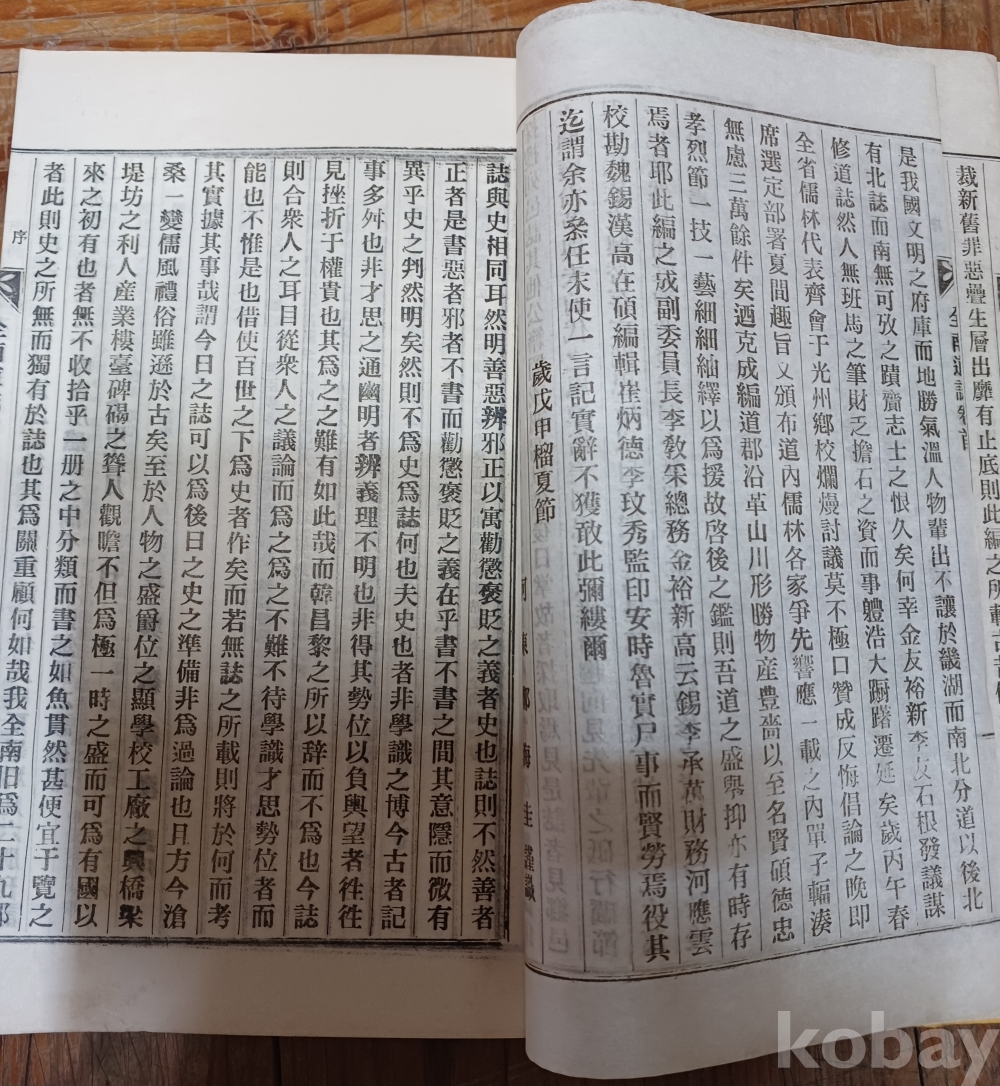 裁新舊罪惡疊生層出靡有止底則此編之所載
全南通誌卷首
是我國文明之府庫而地勝氣溫人物輩出不讓於畿湖而南北分道以後北
有北誌而南無可攷之蹟齎志士之恨久矣何幸金友裕新李友石根發議謀
修道誌然人無班馬之筆財乏擔石之資而事軆浩大蹰躇遷延矣歲丙午春
全省儒林代表齊會于光州鄉校爛熳討議莫不極口贊成反悔倡論之晚即
席選定部署夏間趣旨又頒布道內儒林各家爭先響應一載之內單子輻湊
無慮三萬餘件矣迺克成編道郡沿革山川形勝物産豊嗇以至名賢碩德忠
孝烈節一技一藝細細紬繹以爲援故啓後之鑑則吾道之盛興抑亦有時存
焉者耶此編之成副委員長李敎采總務金裕新高云錫李承萬財務河應雲
校勘魏錫漢高在碩編輯崔炳德李玟秀監印安時魯實尸事而賢勞焉役其
迄謂余亦叅任末使一言記實辭不獲敢此彌縷爾
歲戊申榴夏節
誌與史相同耳然明善惡辨邪正以寓勸懲褒貶之義者史也誌則不然善者
正者是書惡者邪者不書而勸懲褒貶之義在乎書不書之間其意隱而微有
異乎史之判然明矣然則不爲史爲誌何也夫史也者非學識之博今古者記
事多舛也非才思之通幽明者辨義理不明也非得其勢位以負輿望者徃徃
見挫折于權貴也其爲之之難有如此哉而韓昌黎之所以辞而不爲也今誌
則合衆人之耳目從衆人之議論而爲之爲之不難不待學識才思勢位者而
能也不惟是也借使百世之下爲史者作矣而若無誌之所載則將於何而考
其實據其事哉謂今日之誌可以爲後日之史之準備非爲過論也且方今滄
桑一變儒風禮俗雖遜於古矣至於人物之盛爵位之顯學校工廠之興橋梁
堤坊之利人産業樓臺碑碣之聳人觀瞻不但爲極一時之盛而可爲有國以
來之初有也者無不收拾乎一册之中分類而書之如魚貫然甚便宜于覽之
者此則史之所無而獨有於誌也其爲關重顧何如哉我全南旧爲二十九郡
序
kobay